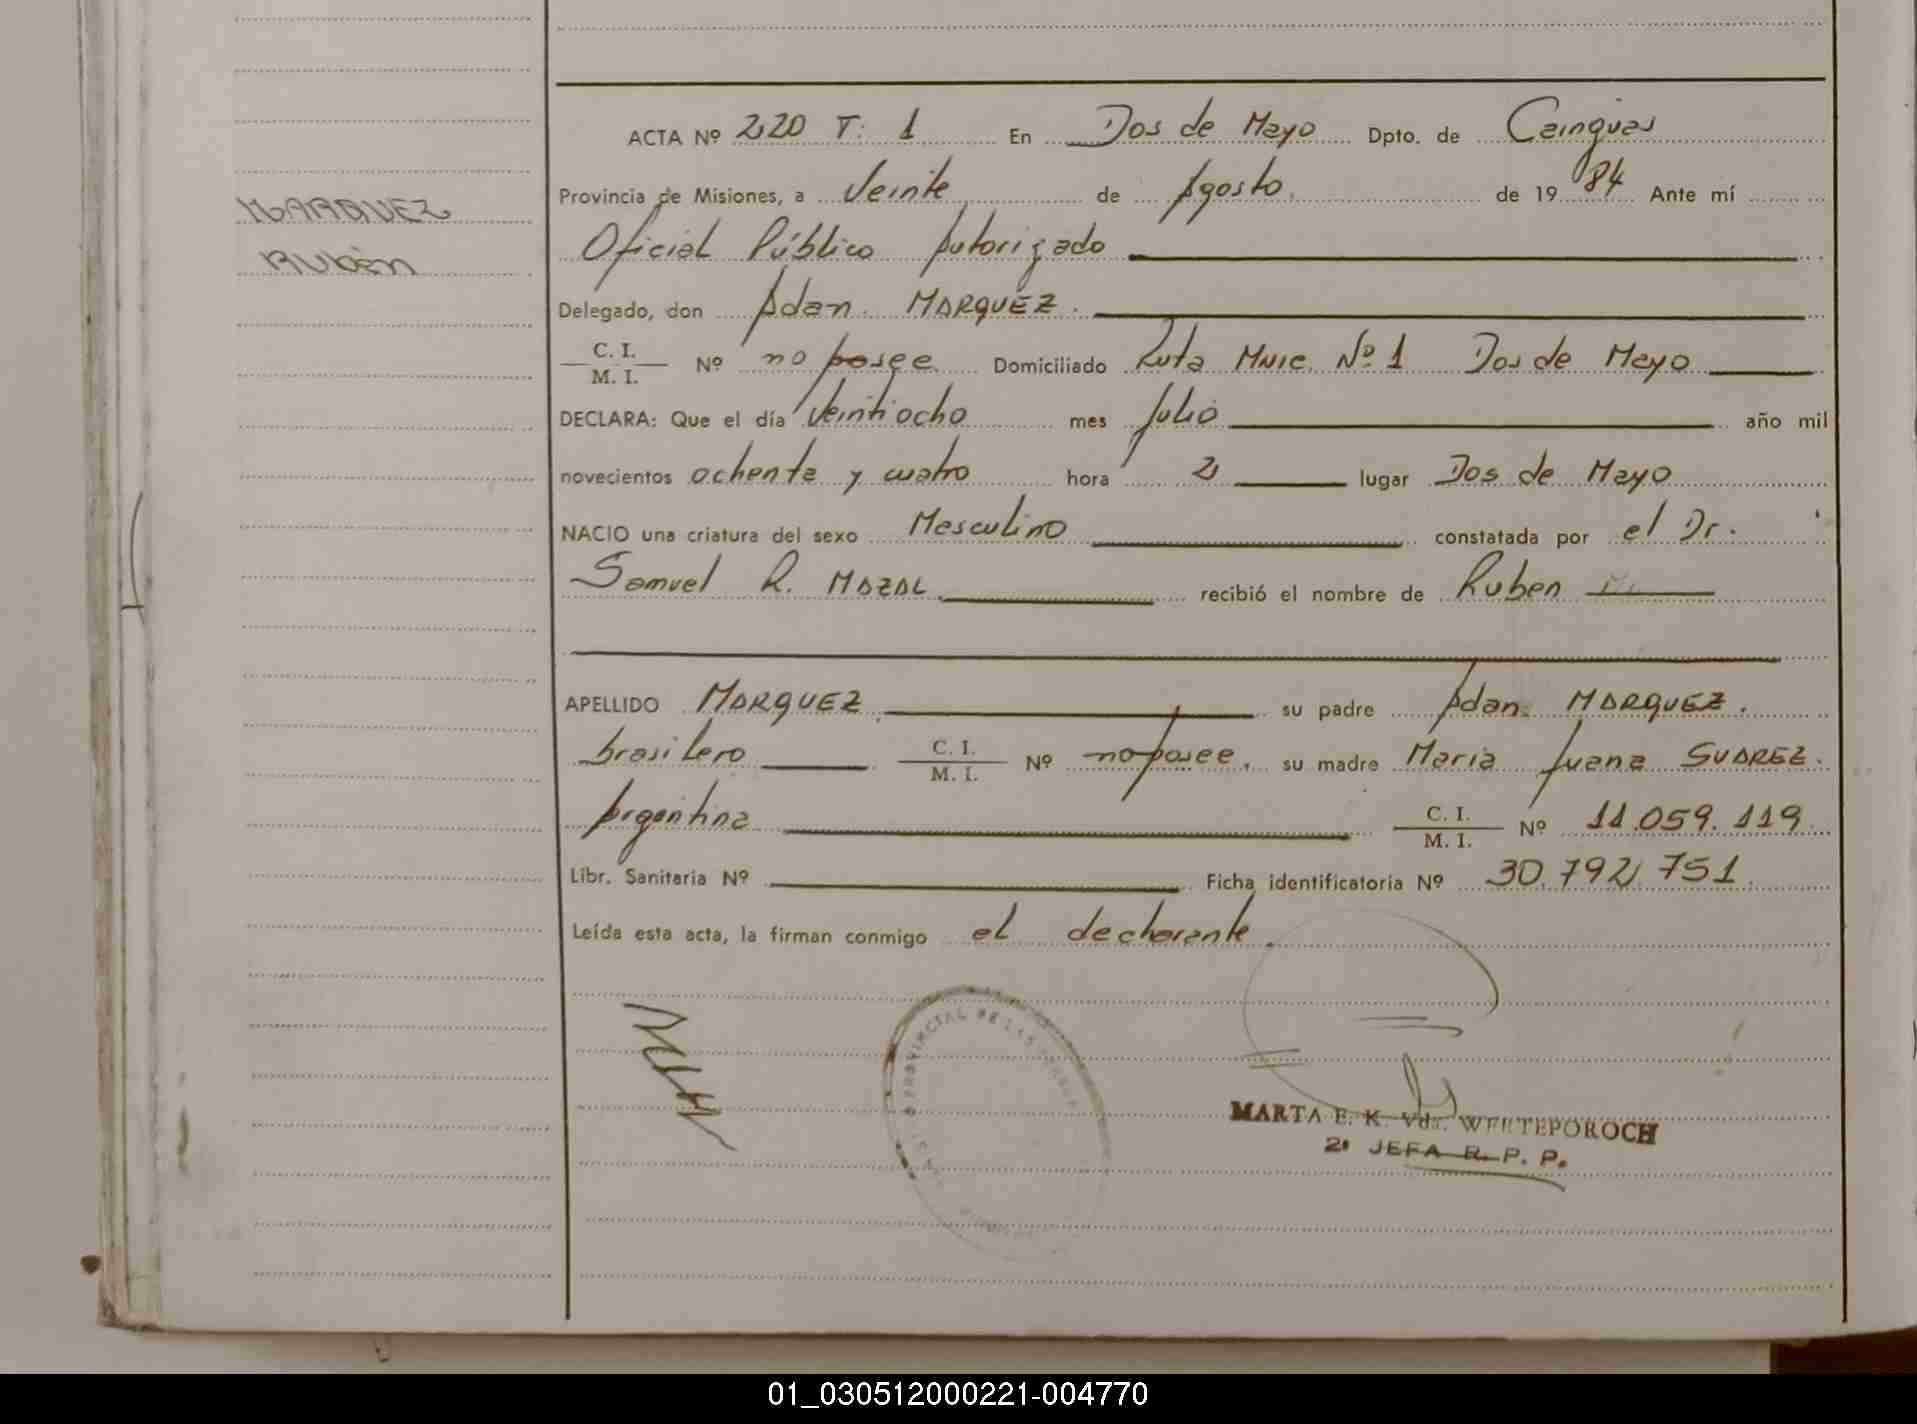 MARQUEZ
Rubén
ACTA Nº 220 T: 1 En Dos de Mayo Dpto. de Cainguas
Provincia de Misiones, a Veinte de Agosto. de 1984 Ante mí
Oficial Público Autorizado
Delegado, don Adan. MARQUEZ.
C. I.
M. I. Nº no posee. Domiciliado Ruta Mnic. Nº 1 Dos de Mayo
DECLARA: Que el día Veintiocho mes Julio año mil
novecientos ochenta y cuatro hora 2 lugar Dos de Mayo
NACIO una criatura del sexo Masculino constatada por el Dr.
Samuel R. MAZAL recibió el nombre de Ruben
APELLIDO MARQUEZ su padre Adan. MARQUEZ.
brasilero C. I.
M. I. Nº no posee, su madre Maria Juana SUAREZ.
Argentina C. I.
M. I. Nº 11.059.119
Libr. Sanitaria Nº Ficha identificatoria Nº 30.792.751.
Leída esta acta, la firman conmigo el declarante.
PROVINCIAL DE LAS PERSONAS
MARTA E. K. Vda. WERTEPOROCH
2ª JEFA R. P. P.
01_030512000221-004770